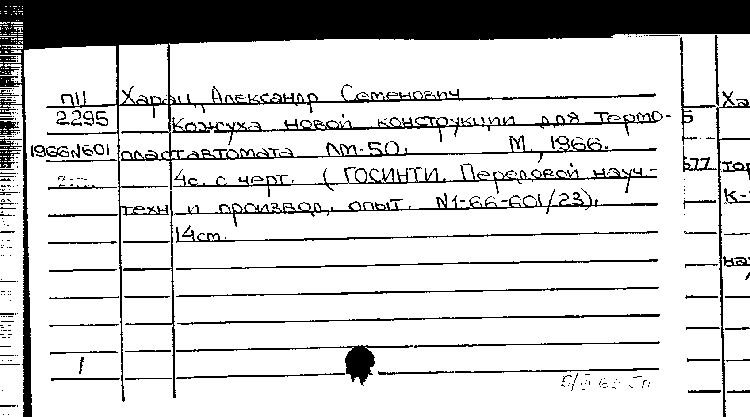 ПII Харац, Александр Семенович
2295 Кожуха новой конструкции для термо-
1966№601 пластавтомата ЛМ-50. М., 1966.
4с. с черт. (ГОСИНТИ. Передовой науч.-
техн. и производ. опыт. №1-66-601/23).
14см.
1
Ха
5
577 тор
К-
на